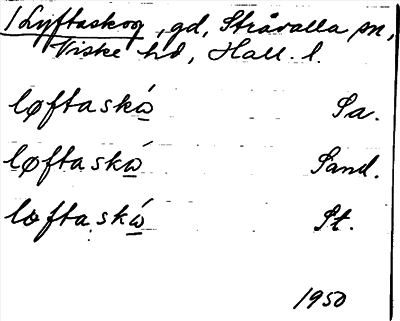 1 Lyftaskog, gd, Stråvalla sn,
Viske hd, Hall. l.
løftaská̱ Sa.
løftaská̱ Sand.
loftaská̱ St.
1950